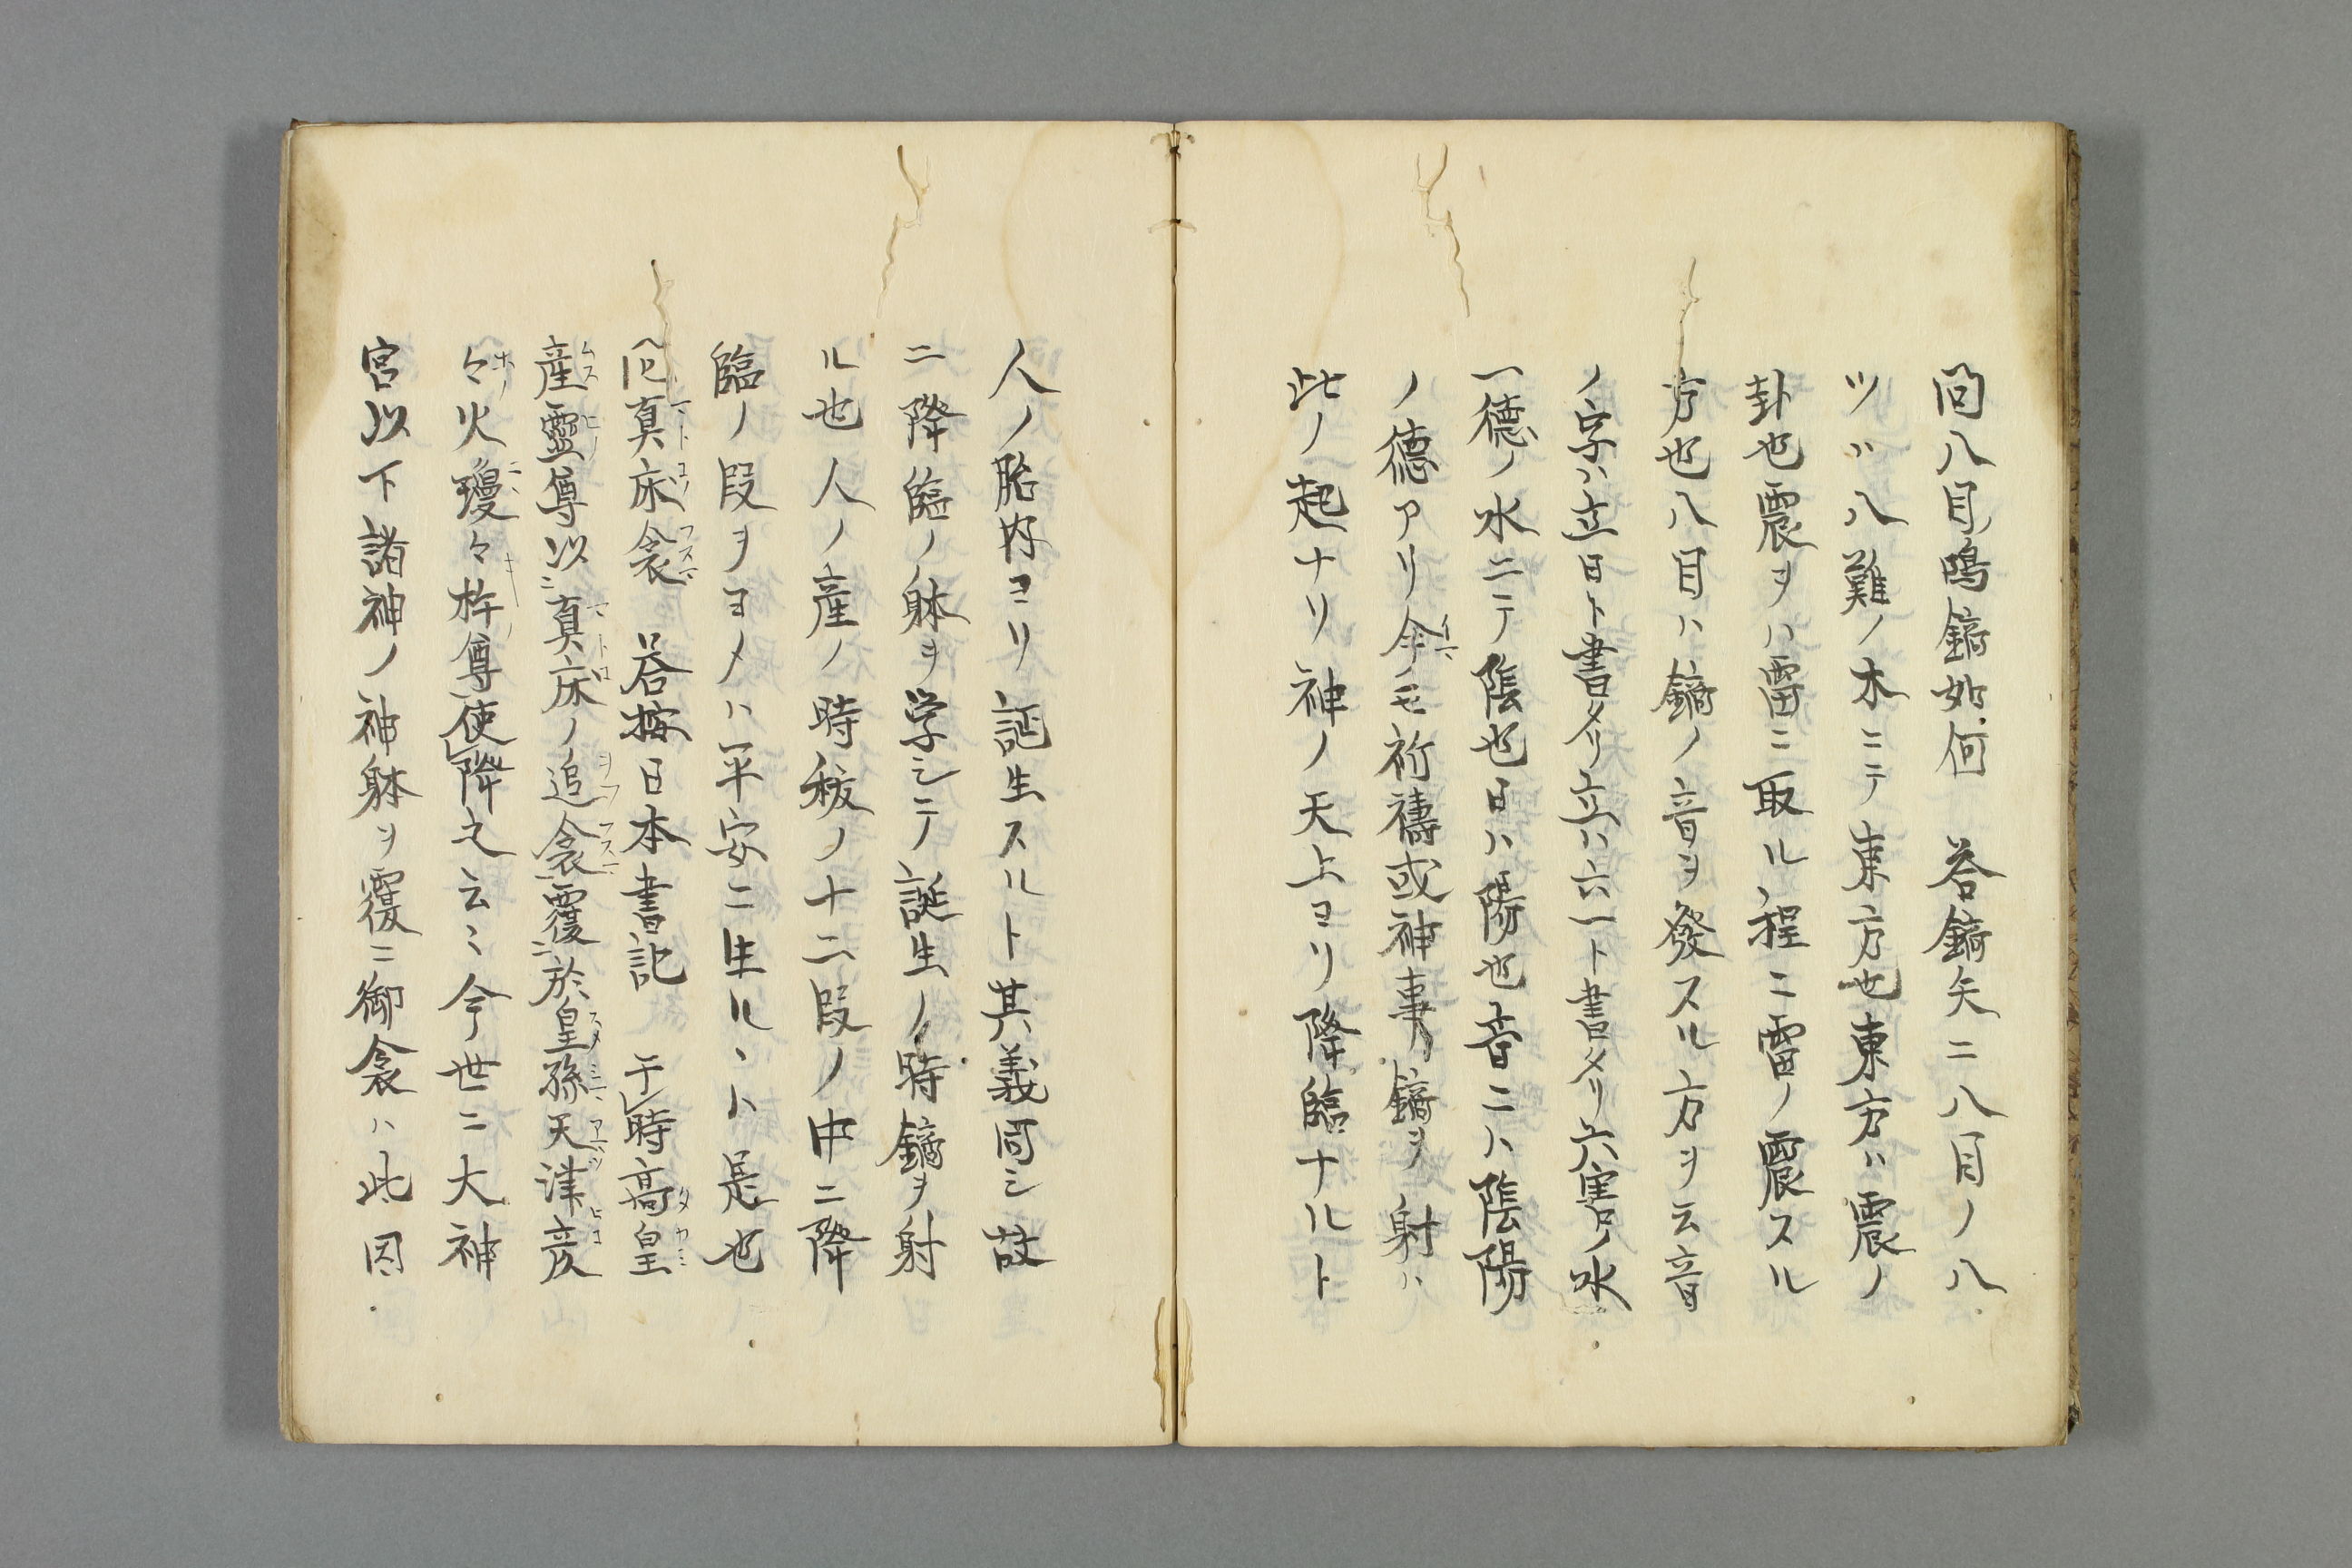 問八目鳴鏑如何　答鏑矢ニ八目ノ八
ツハ八難ノ木ニテ東方也東方ハ震ノ
卦也震ヲハ雷ニ取ル程ニ雷ノ震スル
方也八目ハ鏑ノ音ヲ發スル方ヲ云音
ノ字ハ立日ト書タリ立ハ六一ト書タリ六害ノ水
一徳ノ水ニテ陰也日ハ陽也音ニハ陰陽
ノ徳アリ今モ祈禱或神事ノ鏑ヲ射ハ
此ノ起ナリ神ノ天上ヨリ降臨ナルト
人ノ胎内ヨリ誕生スルト其義同シ故
ニ降臨ノ躰ヲ学シテ誕生ノ時鏑ヲ射
ル也人ノ産ノ時秡ノ十二段ノ中ニ降
臨ノ段ヲヨメハ平安ニ生ルヽハ是也
問真床衾　答按日本書記　于時高皇
産霊尊以真床ノ追衾覆於皇孫天津彦
々火瓊々杵尊使降之云々今世ニ大神
宮以下諸神ノ神躰ヲ覆ニ御衾ハ此因